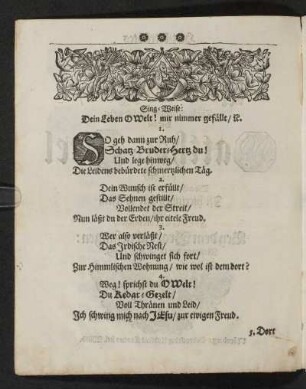 Sing-Weise:
Dein Leben O Welt! mir nimmer gefällt/ ꝛc.
1.
SO geh dann zur Ruh/
Schatz-Bruder-Hertz du!
Und lege hinweg/
Die Leidens bebürdete schmertzlichen Täg.
2.
Dein Wunsch ist erfüllt/
Das Sehnen gestillt/
Vollendet der Streit/
Nun läßt du der Erden/ ihr eitele Freud.
3.
Wer also verläßt/
Das Irdische Nest/
Und schwinget sich fort/
Zur Himmlischen Wohnung/ wie wol ist dem dort?
4.
Weg! sprichst du O Welt!
Du Kedar-Gezelt/
Voll Thränen und Leid/
Ich schwing mich nach JEsu/ zur ewigen Freud.
5. Dort